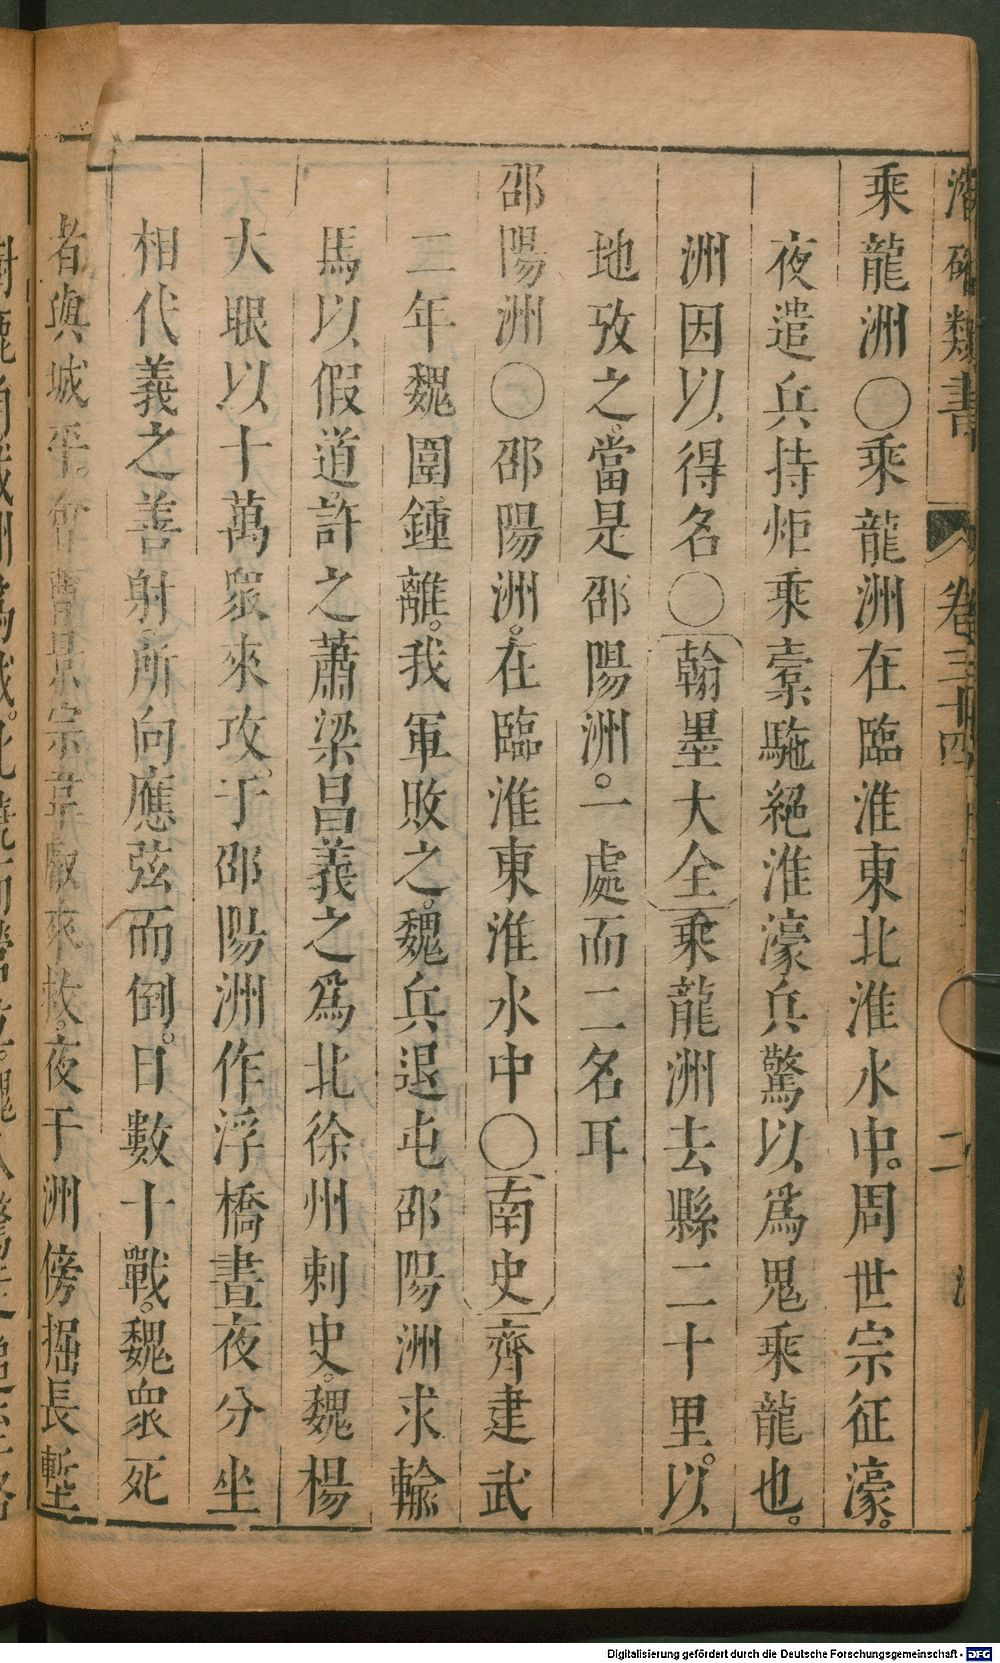 潛確類書 卷三十四 二
乘龍洲〇乘龍洲在臨淮東北淮水中。周世宗征濠。
夜遣兵持炬乘橐駞絕淮濠兵驚以爲鬼乘龍也。
洲因以得名〇翰墨大全乘龍洲去縣二十里。以
地攷之。當是邵陽洲。一處而二名耳
邵陽洲〇邵陽洲。在臨淮東淮水中〇南史齊建武
二年魏圍鍾離。我軍敗之。魏兵退屯邵陽洲求輸
馬以假道。許之蕭梁昌義之爲北徐州刺史。魏楊
大眼以十萬衆來攻。于邵陽洲作浮橋晝夜分坐
相代義之善射。所向應弦而倒。日數十戰。魏衆死
者與城平。曹景宗韋叡來救。夜于洲傍掘長塹
Digitalisierung gefördert durch die Deutsche Forschungsgemeinschaft - DFG